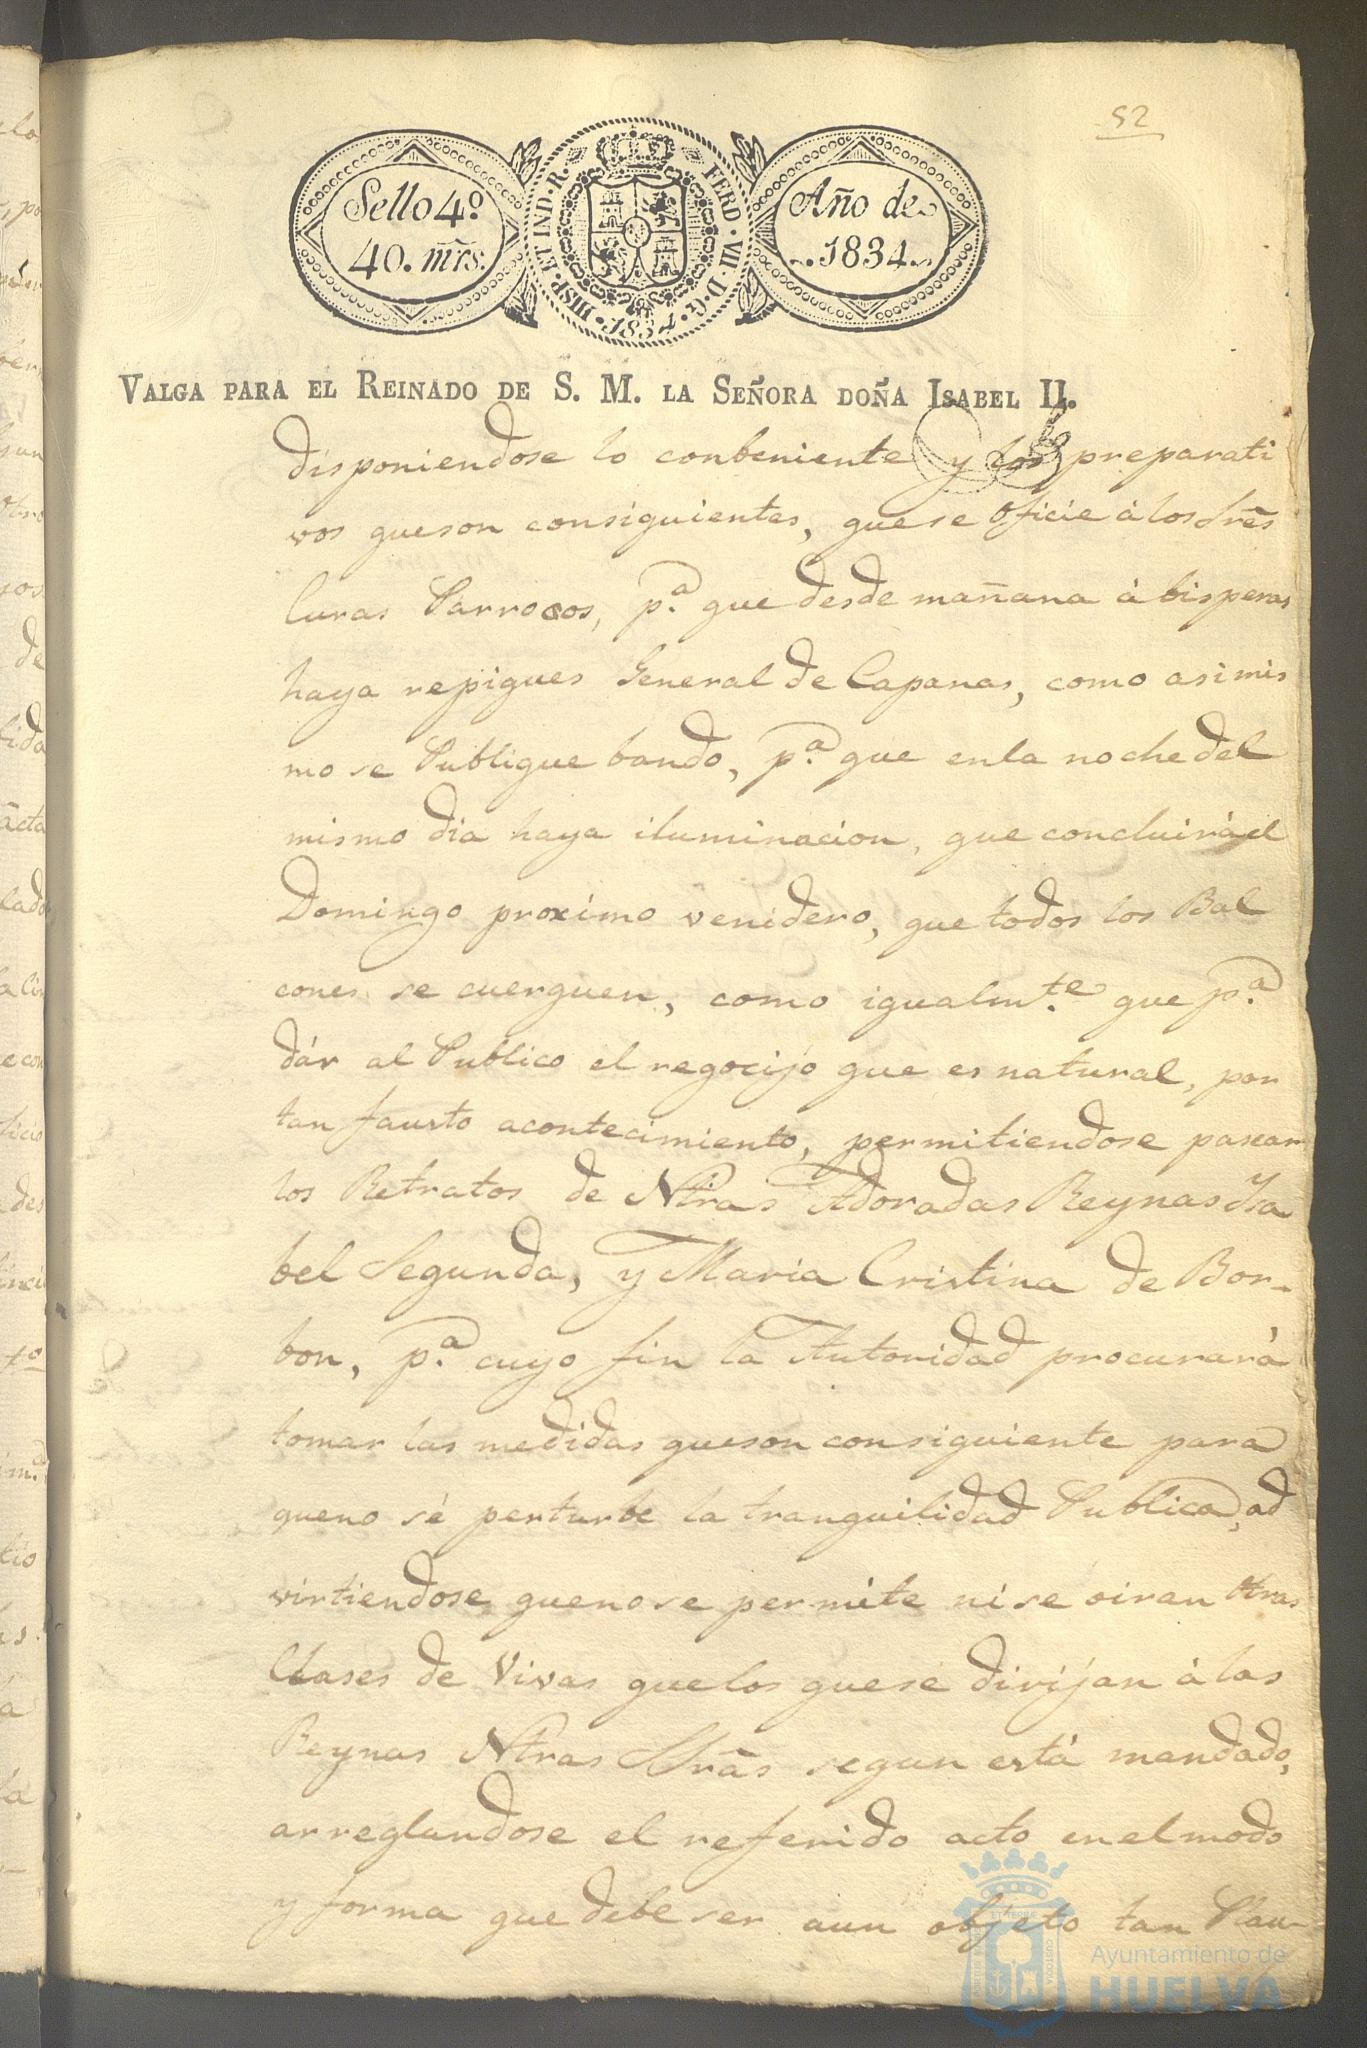 52
Sello 4º
40. mrs.
HISP. ET IND. R.
FERD. VII. D. G.
1834.
Año de
1834.
VALGA PARA EL REINADO DE S. M. LA SEÑORA DOÑA ISABEL II.
disponiendose lo conbeniente y los preparati
vos queson consiguientes, quese oficie á los Srēs
Curas Parrocos, pª. que desde mañana á bisperas
haya repiques General de Capanas, como asimis
mo se Publique bando, pª. que enla noche del
mismo dia haya iluminacion, que concluirá el
Domingo proximo venidero, que todos los Bal
cones se cuerguen, como igualmte. que pª.
dár al Publico el regocijo que es natural, por
tan fausto acontecimiento, permitiendose pasear
los Retratos de Ntras Adoradas Reynas Ysa
bel Segunda, y Maria Cristina de Bor-
bon, pª. cuyo fin la Autoridad procurará
tomar las medidas queson consiguiente para
queno sé perturbe la tranquilidad Publica, ad
virtiendose quenose permite ni se oiran Otras
Clases de Vivas quelos quese dirijan á las
Reynas Ntras Srãs segun está mandado,
arreglandose el referido acto enel modo
y forma que debe ser aun objeto tan Plau-
Ayuntamiento de
HUELVA